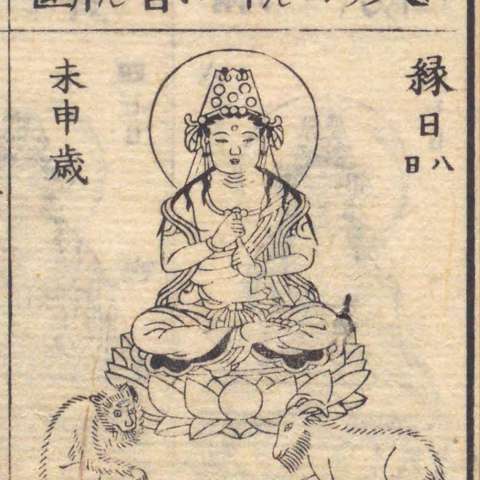 縁日八日
未申歳